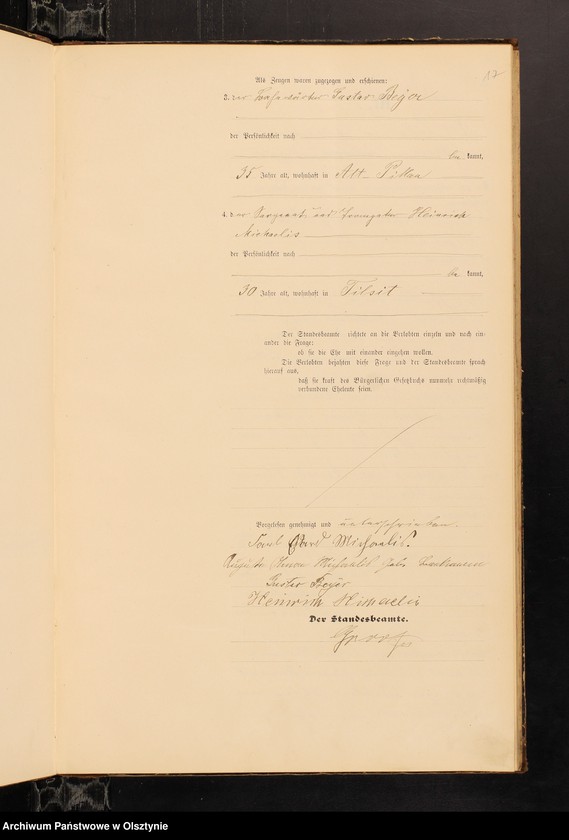 Als Zeugen waren zugezogen und erschienen:
3. der Gustav Beyer
der Persönlichkeit nach
be kannt,
35 Jahre alt, wohnhaft in Alt Pillau
4. der Sergeant und Heinrich
Michaelis
der Persönlichkeit nach
be kannt,
30 Jahre alt, wohnhaft in Tilsit
Der Standesbeamte richtete an die Verlobten einzeln und nach ein-
ander die Frage:
ob sie die Ehe mit einander eingehen wollen.
Die Verlobten bejahten diese Frage und der Standesbeamte sprach
hierauf aus,
daß sie kraft des Bürgerlichen Gesetzbuchs nunmehr rechtmäßig
verbundene Eheleute seien.
Vorgelesen genehmigt und unterschrieben.
Michaelis.
Auguste Michaelis geb.
Gustav Beyer
Heinrich Michaelis
Der Standesbeamte.
Archiwum Państwowe w Olsztynie